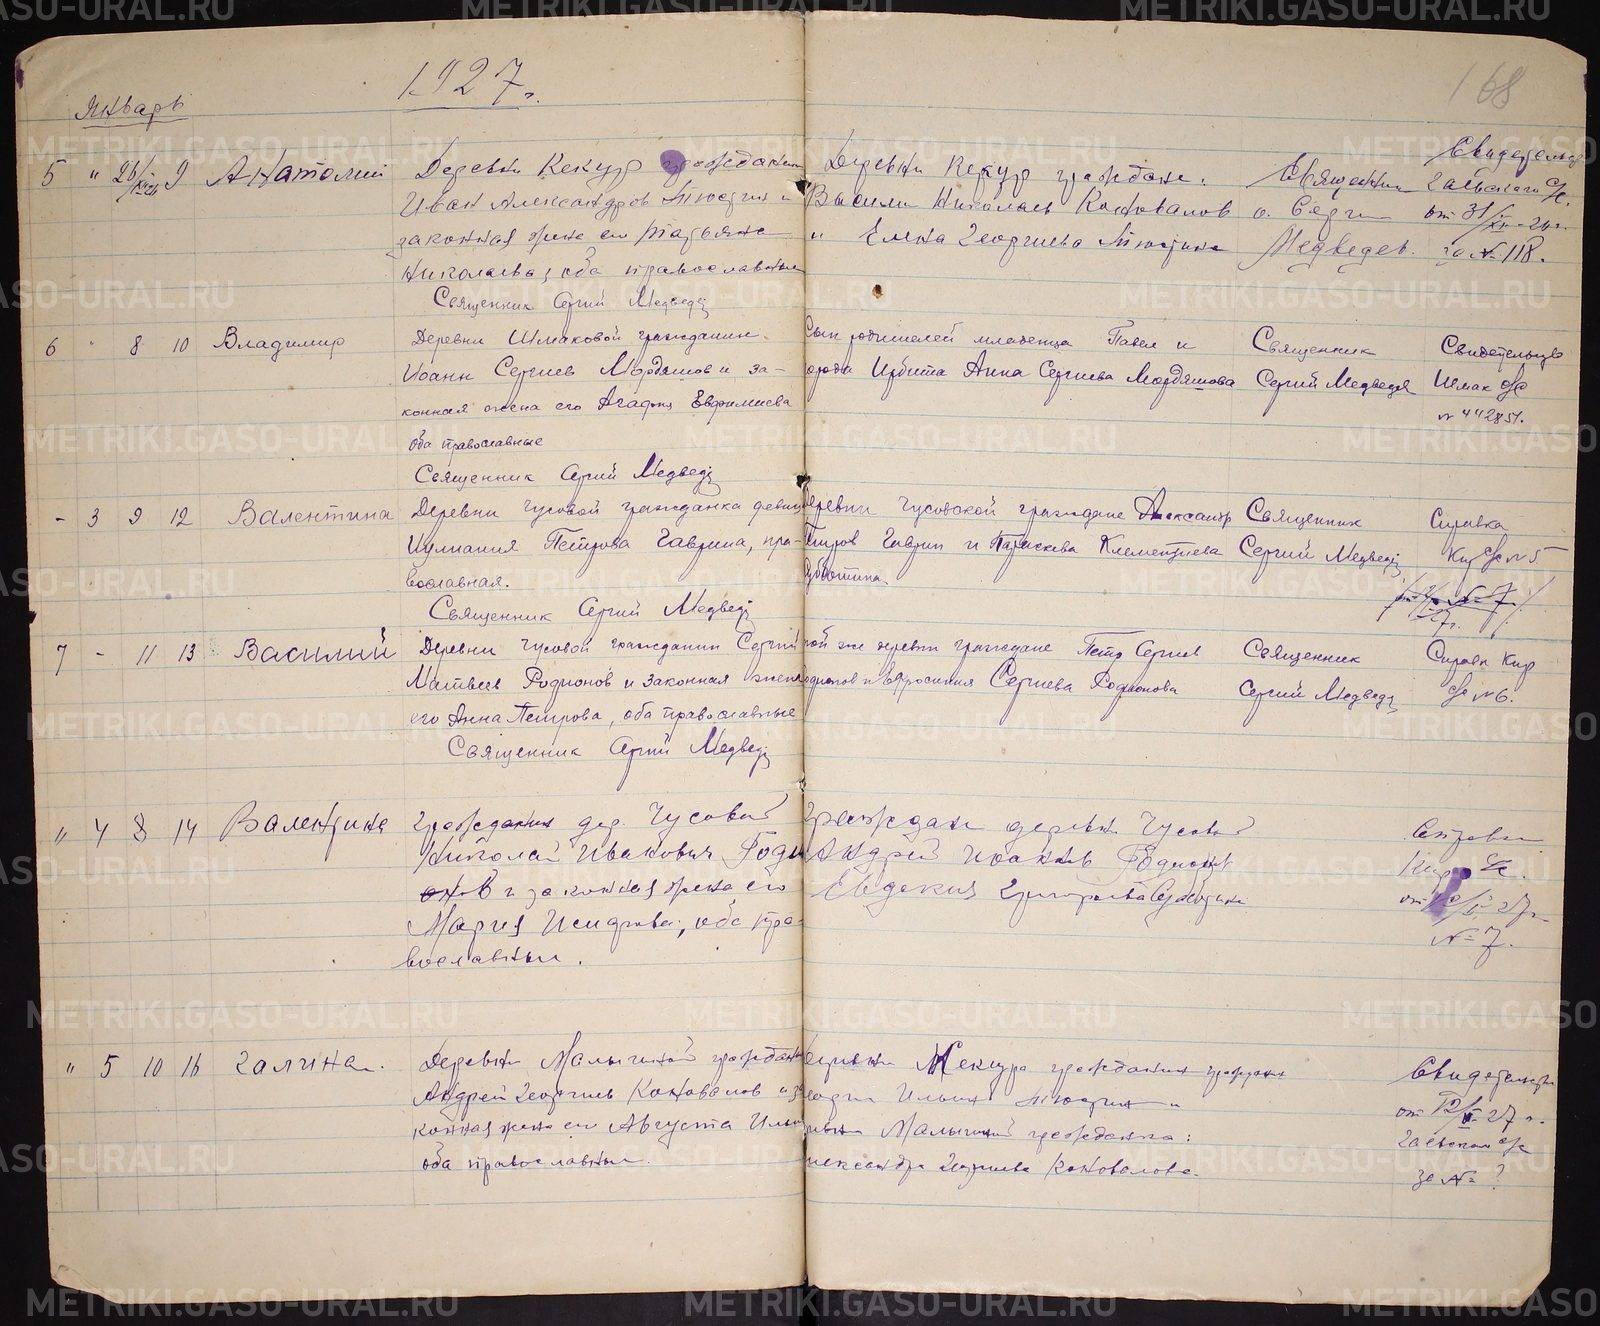 1927 г.
168
Январь
5 " 26/XII 9 Анатолий
Деревни Кекур гражданин
Иван Александров Тюстин и
законная жена его Татьяна
Николаева, оба православные
Священник Сергий Медведев
Деревни Кекур граждане:
Василий Николаев Коновалов
" Елена Георгиева Тюстина
Священник
о. Сергий
Медведев.
Свидетельство
Гаевского с/с.
от 31/XII-26 г.
за № 118.
6 " 8 10 Владимир
Деревни Шмаковой гражданин
Иоанн Сергиев Мордяшов и за-
конная жена его Агафия Евфимиева
оба православные
Священник Сергий Медведев
Сын родителей младенца Павел и
города Ирбита Анна Сергиева Мордяшова
Священник
Сергий Медведев
Свидетельство
Шмак с/с
№ 442851.
- 3 9 12 Валентина
Деревни Чусовой гражданка девица
Иулиания Петрова Гаврина, пра-
вославная.
Священник Сергий Медведев
Деревни Чусовской граждане Александр
Петров Гаврин и Параскева Климентиева
Субботина
Священник
Сергий Медведев
Справка
Кир с/с № 5
№ 7
7 - 11 13 Василий
Деревни Чусовой гражданин Сергий
Матвеев Родионов и законная жена
его Анна Петрова, оба православные
Священник Сергий Медведев
той же деревни граждане Петр Сергиев
Родионов и Евфросиния Сергиева Родионова
Священник
Сергий Медведев
Справк Кир
с/с № 6.
" 4 8 14 Валентина
Гражданин дер. Чусовой
Николай Иванович Роди
онов и законная жена его
Мария Исидрова, оба пра-
вославные.
Граждане деревни Чусовой
Андрей Иоаннов Родионов
Евдокия Григориева
Справка
Кир с/с.
27 г.
№ 7.
" 5 10 16 Галина.
Деревни Малыгиной граждан
Андрей Георгиев Коновалов и за
конная жена его Августа Ильи
оба православные.
деревни Кекура гражданин
Георгий Ильин Тюстин и
деревни Малыгиной гражданка:
Александра Георгиева Коновалова.
Свидетельство
от 12/I-27 г.
Гаевского с/с
за № ?
METRIKI.GASO-URAL.RU